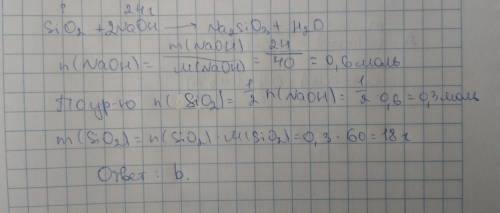 ? 24г
SiO₂ + 2NaOH → Na₂SiO₃ + H₂O
n(NaOH) = m(NaOH) / M(NaOH) = 24 / 40 = 0,6 моль
По ур-ю n(SiO₂) = 1/2 n(NaOH) = 1/2 0,6 = 0,3 моль
m(SiO₂) = n(SiO₂) · M(SiO₂) = 0,3 · 60 = 18г
Ответ : b.